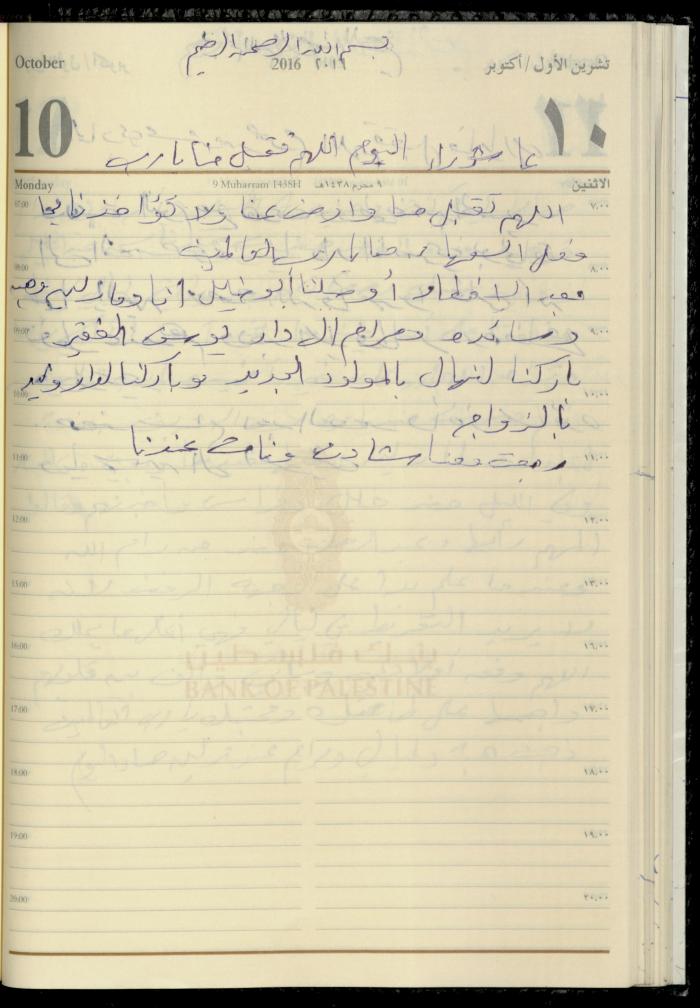 بسم الله الرحمن الرحيم
October
2016 ٢٠١٦
تشرين الأول / أكتوبر
10
١٠
عاشوراء اليوم اللهم تقبل منا يا رب
Monday
9 Muharram 1438H ٩ محرم ١٤٣٨هـ
الاثنين
07:00 ٧,٠٠
اللهم تقبل منا وارض عنا ولا تؤاخذنا بما
فعل السفهاء منا يا رب العالمين
08:00 ٨,٠٠
بعد الافطار أوصلنا أبو خليل انا و
09:00 ٩,٠٠
ومرام الى دار يوسف الفقير
باركنا لنهال بالمولود الجديد وباركنا لدار وليد
10:00 ١٠,٠٠
بالزواج
رجعت معنا ونامت عندنا
11:00 ١١,٠٠
12:00 ١٢,٠٠
13:00 ١٣,٠٠
16:00 ١٦,٠٠
بنك فلسطين
BANK OF PALESTINE
17:00 ١٧,٠٠
18:00 ١٨,٠٠
19:00 ١٩,٠٠
20:00 ٢٠,٠٠